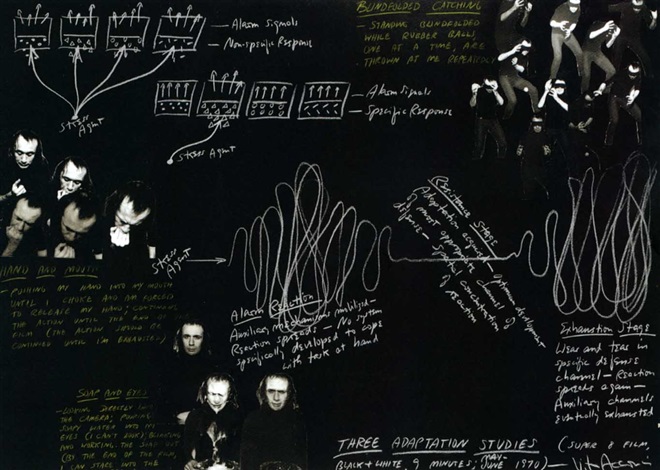 Alarm Signals
Non-specific Response
Stress Agent
Alarm Signals
Specific Response
Stress Agent
BLINDFOLDED CATCHING
- STANDING BLINDFOLDED
WHILE RUBBER BALLS,
ONE AT A TIME, ARE
THROWN AT ME REPEATEDLY
HAND AND MOUTH
- PUSHING MY HAND INTO MY MOUTH
UNTIL I CHOKE AND AM FORCED
TO RELEASE MY HAND; CONTINUING
THE ACTION UNTIL THE END OF
FILM (THE ACTION SHOULD BE
CONTINUED UNTIL I'M EXHAUSTED)
Stress
Agent
Alarm Reaction
Auxiliary mechanisms mobilized -
Reaction spreads - No system
specifically developed to cope
with task at hand
Resistance Stage
Adaptation acquired - optimum development
of most appropriate channel of
defense - spatial concentration
of reaction
Exhaustion Stage
Wear and tear in
specific defense
channel - Reaction
spreads again -
Auxiliary channels
eventually exhausted
SOAP AND EYES
- LOOKING DIRECTLY INTO
THE CAMERA; POURING
SOAPY WATER INTO MY
EYES (I CAN'T LOOK); BLINKING
AND WORKING THE SOAP OUT
(BY THE END OF THE FILM,
I CAN STARE INTO THE
THREE ADAPTATION STUDIES (SUPER 8 FILM,
BLACK + WHITE, 9 MINUTES; MAY-
JUNE 1970) - Vito Acconci